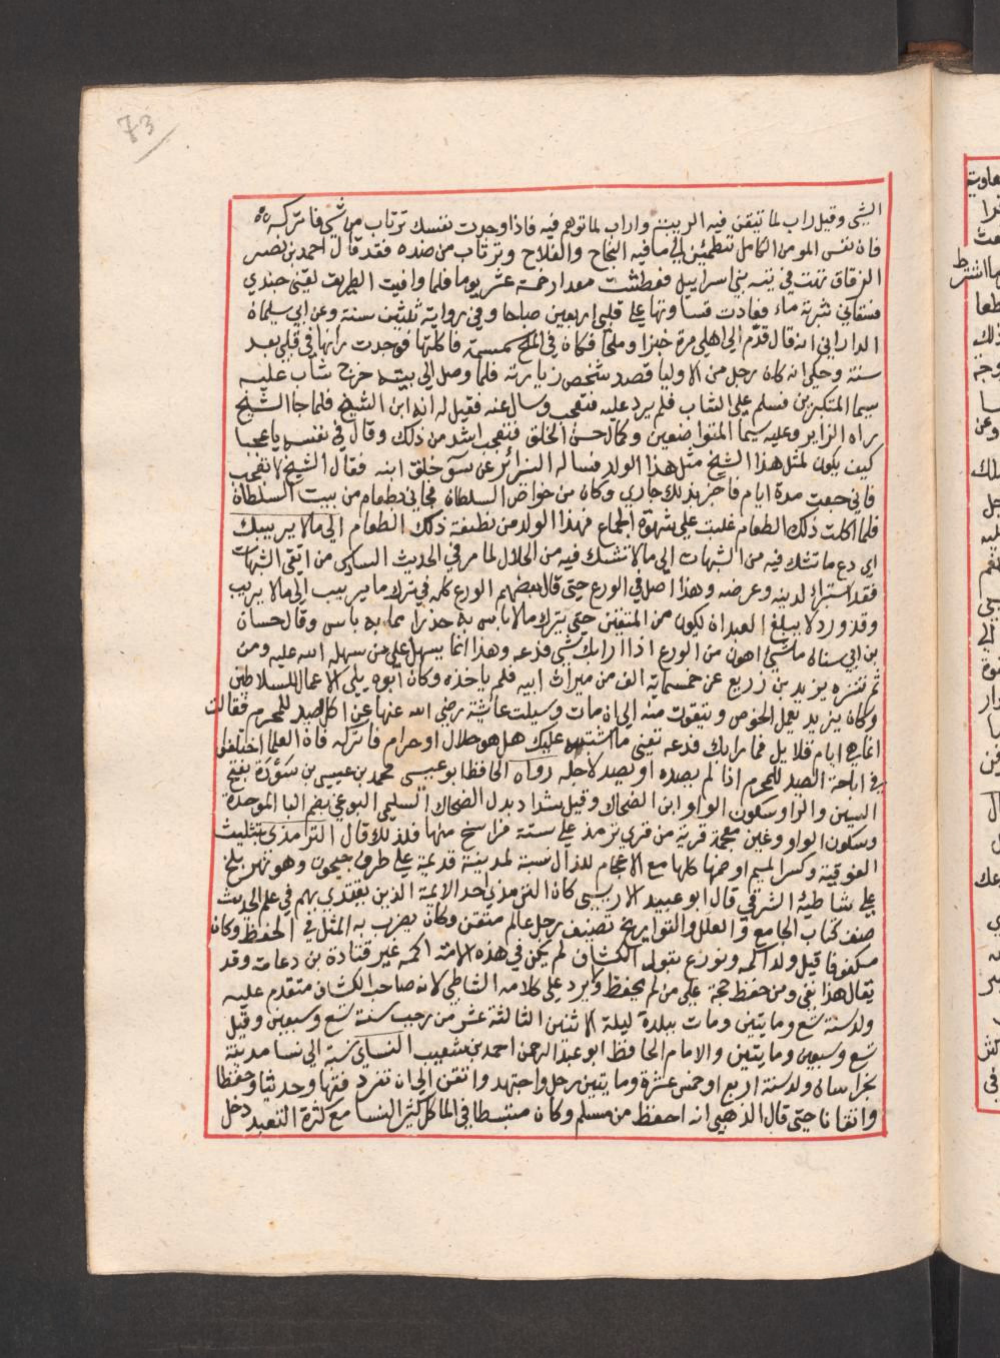 73
الشي وقيل راب لما تيقن فيه الريبة واراب لما توهم فيه فاذا وجدت نفسك ترتاب من شي فاتركه
فان نفس المومن الكامل تطمئن الي ما فيه النجاح والفلاح وترتاب من ضده فقد قال احمد بن نصر
الزقاق تهت في تيه بني اسراييل فعطشت مقدار خمسة عشر يوما فلما وافيت الطريق لقيني جندي
فسقاني شربة ماء فعادت قساوتها علي قلبي اربعين صباحا وفي رواية ثلثين سنة وعن ابي سليمان
الداراني انه قال قدم الي اهلي مرة خبزا وملحا فكان في الملح سمسمة فاكلتها فوجدت رانها في قلبي بعد
سنة وحكي انه كان رجل من الاوليا قصد شخص زيارته فلما وصل الي بيته خرج شاب عليه
سيما المتكبرين فسلم علي الشاب فلم يرد عليه فتعجب وسال عنه فقيل له انه ابن الشيخ فلما جا الشيخ
راه الزاير وعليه سيما المتواضعين وكمال حسن الخلق فتعجب اشد من ذلك وقال في نفسه يا عجبا
كيف يكون لمثل هذا الشيخ مثل هذا الولد فساله الزائر عن سوء خلق ابنه فقال الشيخ لا تعجب
فاني جعت مدة ايام فاخبر بذلك جاري وكان من خواص السلطان فجاني بطعام من بيت السلطان
فلما اكلت ذلك الطعام غلبت علي شهوة الجماع فهذا الولد من نطفة ذلك الطعام الي ما لا يريبك
اي دع ما تشك فيه من الشبهات الي ما لا تشك فيه من الحلال لما مر في الحديث السادس من اتقي الشبهات
فقد استبرا لدينه وعرضه وهذا اصل في الورع حتي قال بعضهم الورع كله في ترك ما يريب الي ما لا يريب
وقد ورد لا يبلغ العبد ان يكون من المتقين حتي يترك ما لا باس به حذرا مما به باس وقال حسان
بن ابي سنان ما شي اهون من الورع اذا رابك شي فدعه وهذا انما يسهل علي من سهله الله عليه ومن
ثم تنزه يزيد بن زريع عن خمسماية الف من ميراث ابيه فلم ياخذه وكان ابوه يلي الاعمال للسلاطين
وكان يزيد يعمل الخوص ويتقوت منه الي ان مات وسيلت عائشة رضي الله عنها عن اكل الصيد للمحرم فقالت
انما هي ايام قلايل فما رابك فدعه تعني ما اشتبه عليك هل هو حلال او حرام فاتركه فان العلما اختلفوا
في اباحة الصيد للمحرم اذا لم يصده او يصد لاجله رواه الحافظ ابو عيسي محمد بن عيسي بن سورة بفتح
السين والرا وسكون الواو ابن الضحاك وقيل شداد بدل الضحاك السلمي البوغي بضم البا الموحدة
وسكون الواو وغين معجمة قرية من قري ترمذ علي ستة فراسخ منها فلذلك قال الترمذي بتثليث
الفوقية وكسر الميم او ضمها كلها مع الاعجام للذال نسبة لمدينة قديمة علي طرف جيحون وهو نهر بلخ
علي شاطيه الشرقي قال ابو عبيد الادريسي كان الترمذي احد الايمة الذين يقتدي بهم في علم الحديث
صنف كتاب الجامع والعلل والتواريخ تصنيف رجل عالم متقن وكان يضرب به المثل في الحفظ وكان
مكفوفا قيل ولد اكمه ونوزع بقول الكشاف لم يكن في هذه الامة اكمه غير قتادة بن دعامة وقد
يقال هذا نفي ومن حفظ حجة علي من لم يحفظ ولا يرد علي كلامه الشاطبي لان صاحب الكشاف متقدم عليه
ولد سنة تسع ومايتين ومات ببلده ليلة الاثنين الثالثة عشر من رجب سنة تسع وسبعين وقيل
تسع وسبعين ومايتين والامام الحافظ ابو عبد الرحمن احمد بن شعيب النسائي نسبة الي نسا مدينة
بخراسان ولد سنة اربع او خمس عشرة ومايتين رحل واجتهد واتقن الي ان تفرد فقها وحديثا وحفظا
واتقانا حتي قال الذهبي انه احفظ من مسلم وكان منبسطا في الماكل كثير النسا مع كثرة التعبد دخل